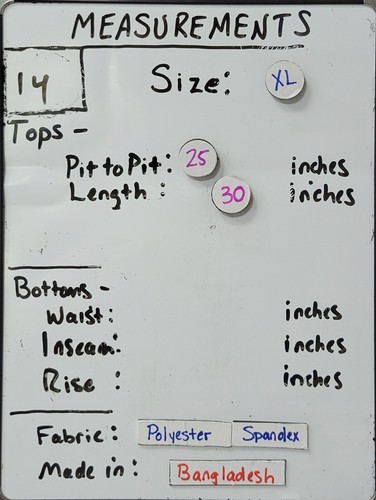 MEASUREMENTS
14
Size: XL
Tops -
Pit to Pit: 25 inches
Length: 30 inches
Bottoms -
Waist: inches
Inseam: inches
Rise: inches
Fabric: Polyester Spandex
Made in: Bangladesh